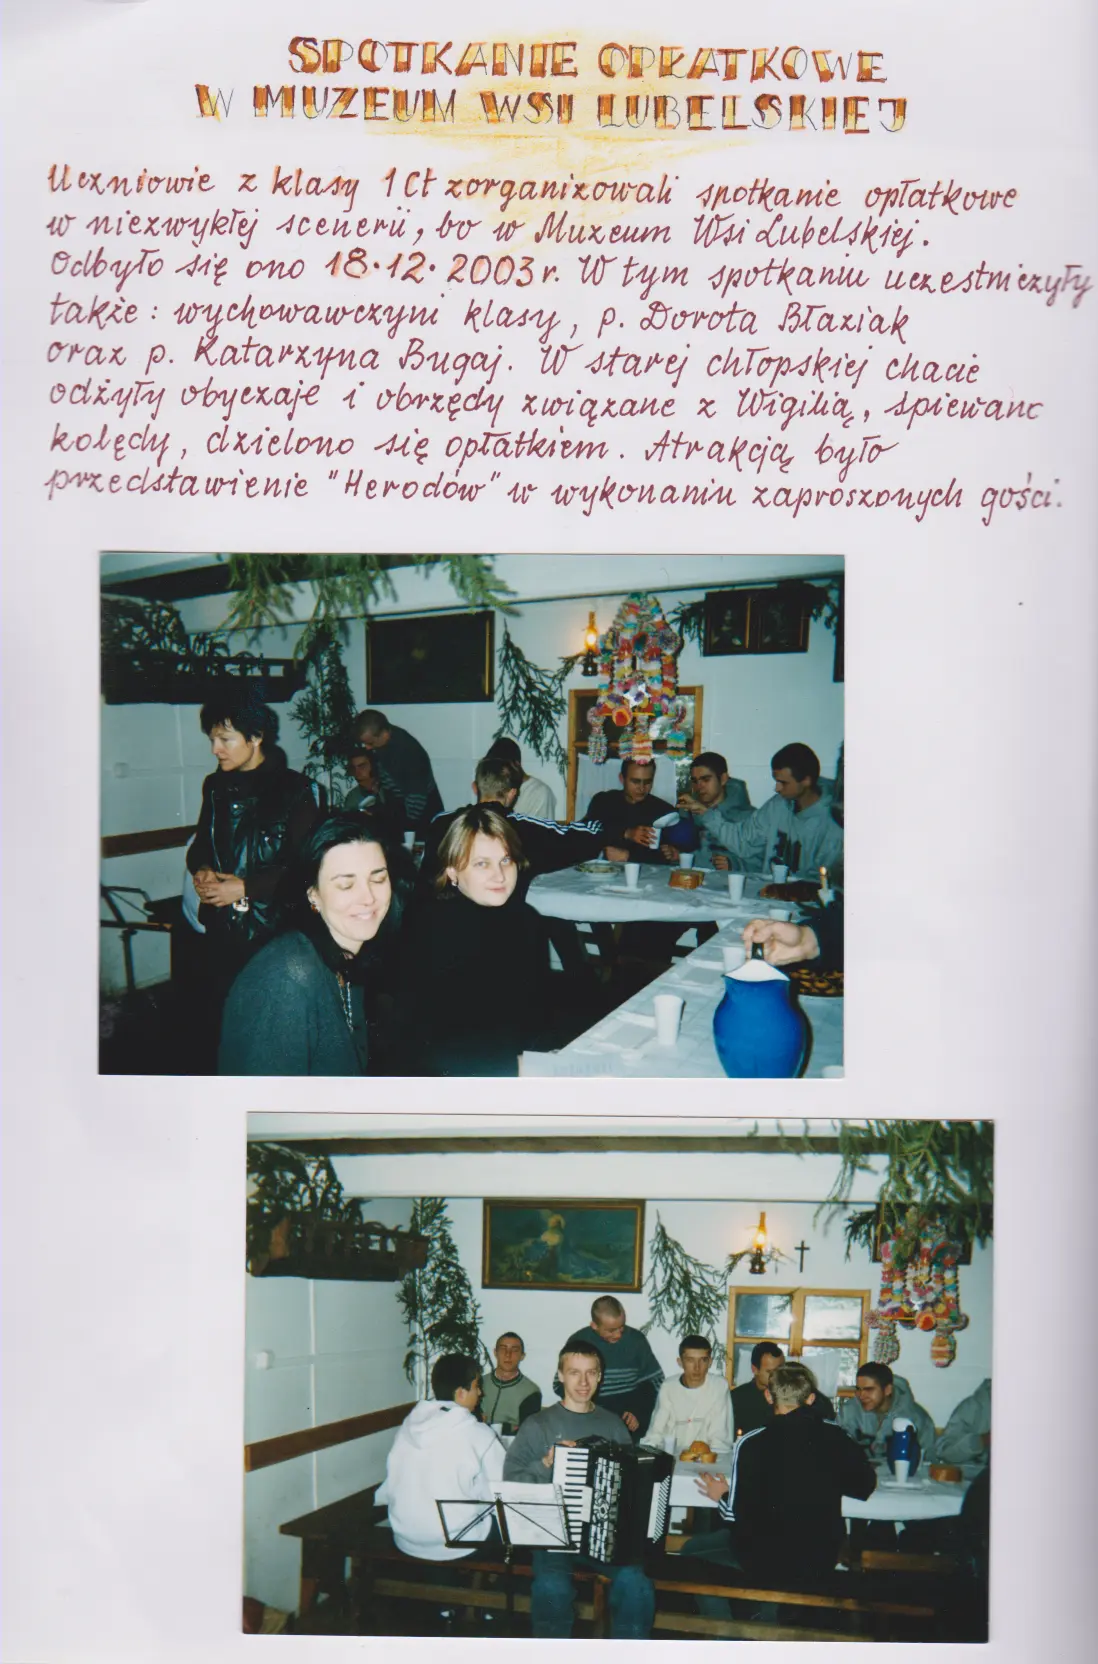 SPOTKANIE OPŁATKOWE
W MUZEUM WSI LUBELSKIEJ
Uczniowie z klasy 1Ct zorganizowali spotkanie opłatkowe
w niezwykłej scenerii, bo w Muzeum Wsi Lubelskiej.
Odbyło się ono 18.12.2003r. W tym spotkaniu uczestniczyły
także: wychowawczyni klasy, p. Dorota Błaziak
oraz p. Katarzyna Bugaj. W starej chłopskiej chacie
odżyły obyczaje i obrzędy związane z Wigilią, śpiewano
kolędy, dzielono się opłatkiem. Atrakcją było
przedstawienie "Herodów" w wykonaniu zaproszonych gości.